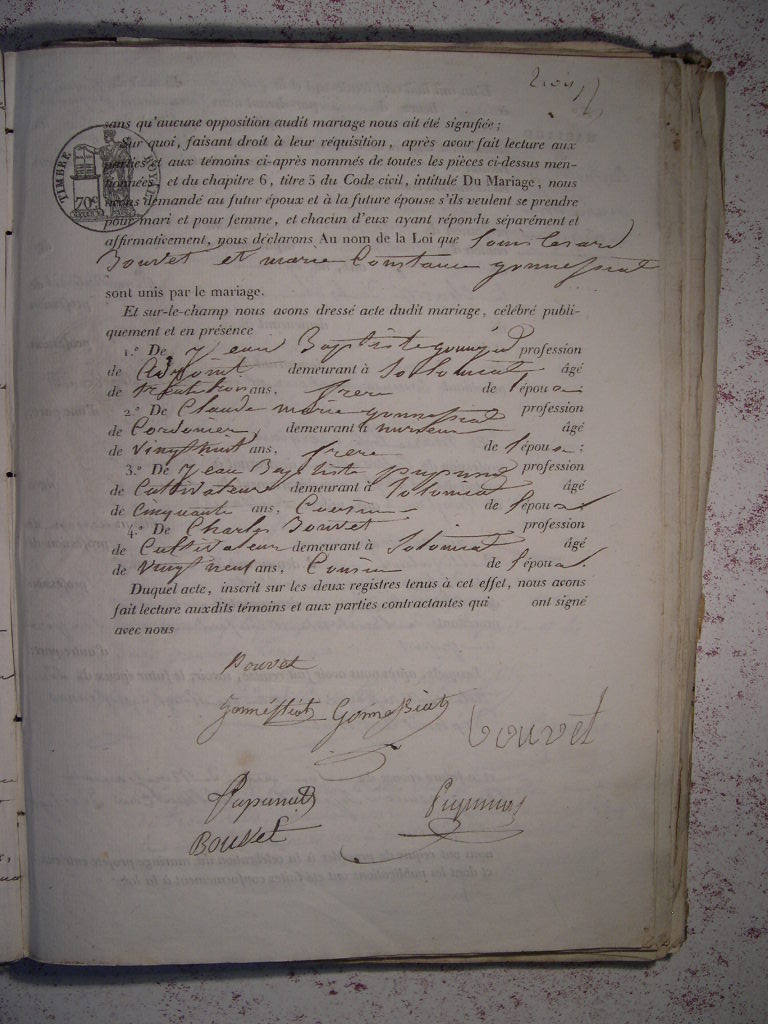 sans qu'aucune opposition audit mariage nous ait été signifiée ;
Sur quoi, faisant droit à leur réquisition, après avoir fait lecture aux
parties et aux témoins ci-après nommés de toutes les pièces ci-dessus men-
tionnées, et du chapitre 6, titre 5 du Code civil, intitulé Du Mariage, nous
avons demandé au futur époux et à la future épouse s'ils veulent se prendre
pour mari et pour femme, et chacun d'eux ayant répondu séparément et
affirmativement, nous déclarons Au nom de la Loi que Louis
Bouvet et marie Constance
TIMBRE ROYAL
70c
sont unis par le mariage.
Et sur-le-champ nous avons dressé acte dudit mariage, célébré publi-
quement et en présence
1.º De Jean Baptiste profession
de Adjoint demeurant à Solomiat, âgé
de trente trois ans, frere de l'épouse
2.º De Claude marie gonnessiat profession
de Cordonier, demeurant à âgé
de vingt huit ans, frere de l'épouse ;
3.º De Jean Baptiste profession
de Cultivateur demeurant à Solomiat âgé
de Cinquante ans, Cousin de l'épou
4.º De Charles Bouvet profession
de Cultivateur demeurant à Solomiat âgé
de vingt neuf ans, Cousin de l'épou
Duquel acte, inscrit sur les deux registres tenus à cet effet, nous avons
fait lecture auxdits témoins et aux parties contractantes qui ont signé
avec nous
Bouvet
Gonnessiat Gonnessiat
bouvet
Bouvet